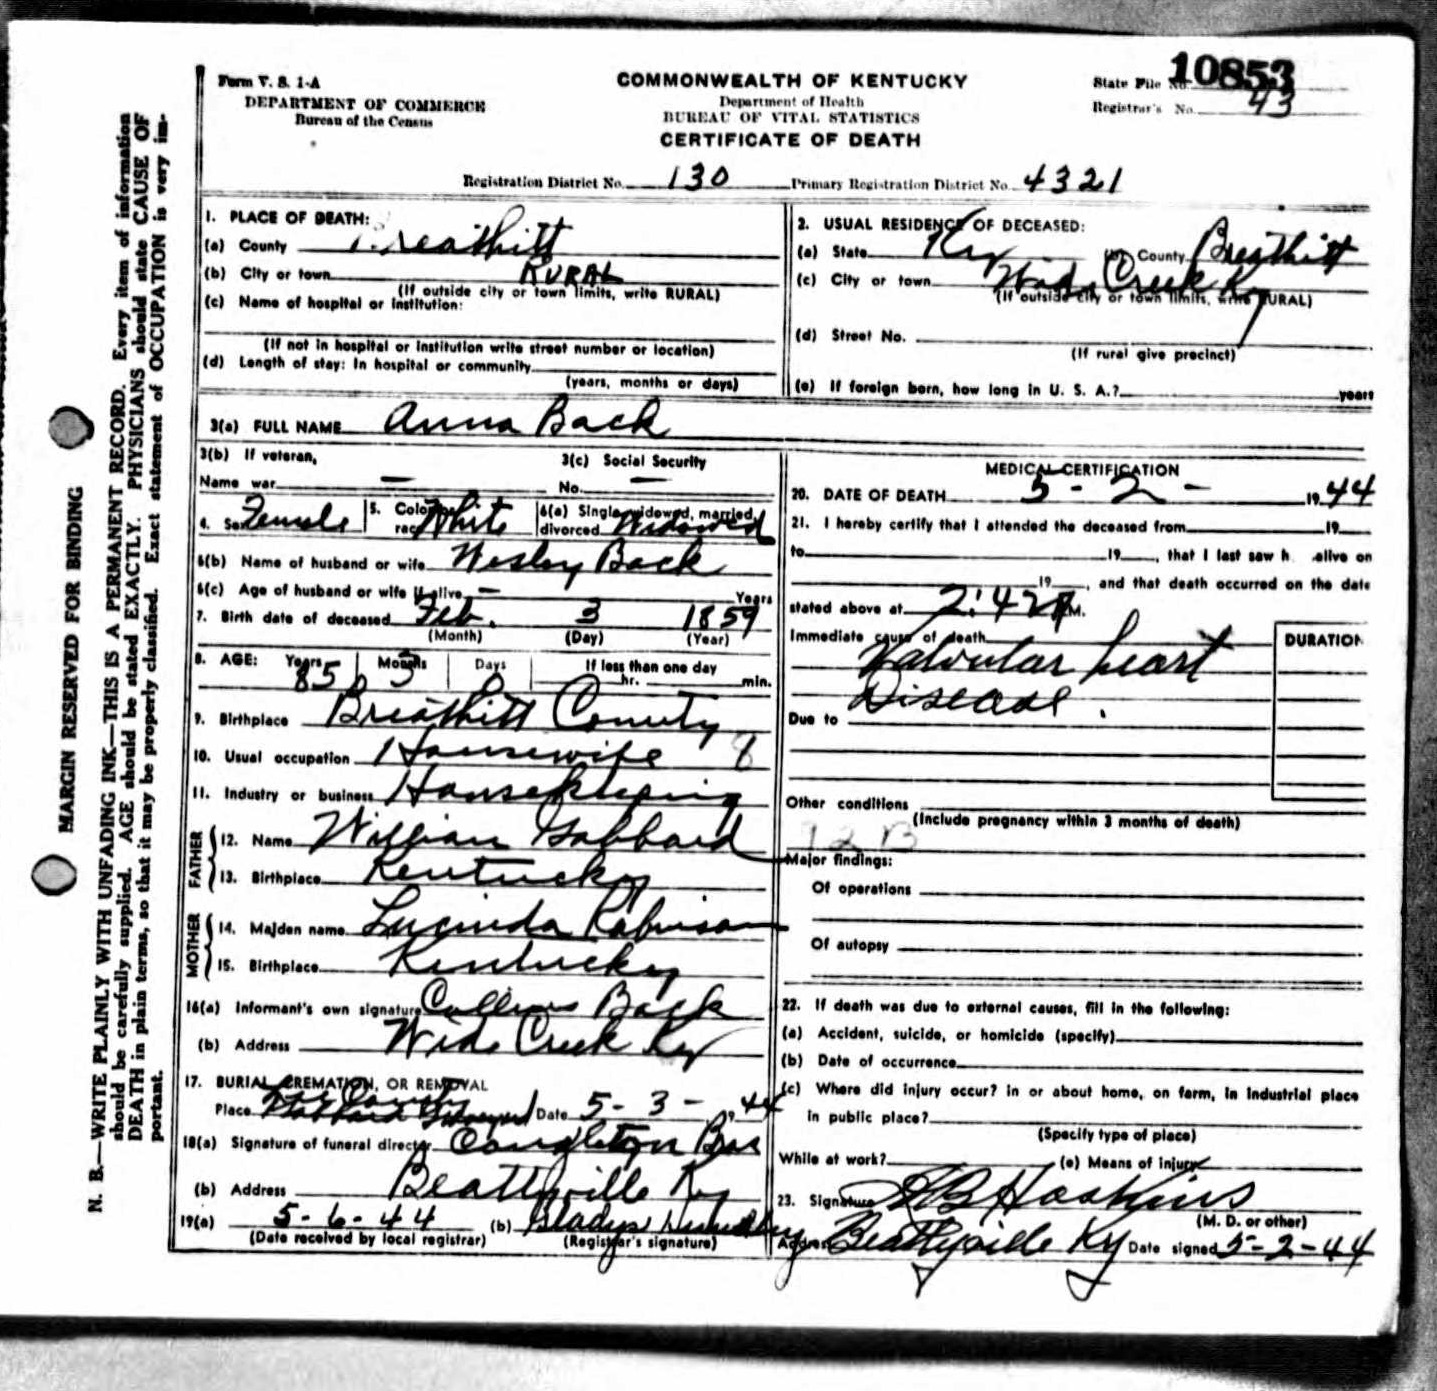 Form V. S. 1-A
DEPARTMENT OF COMMERCE
Bureau of the Census
COMMONWEALTH OF KENTUCKY
Department of Health
BUREAU OF VITAL STATISTICS
CERTIFICATE OF DEATH
State File No. 10853
Registrar's No. 43
Registration District No. 130 Primary Registration District No. 4321
1. PLACE OF DEATH:
(a) County Breathitt
(b) City or town RURAL
(If outside city or town limits, write RURAL)
(c) Name of hospital or institution:
(If not in hospital or institution write street number or location)
(d) Length of stay: In hospital or community
(years, months or days)
2. USUAL RESIDENCE OF DECEASED:
(a) State Ky (b) County Breathitt
(c) City or town Wide Creek Ky
(If outside city or town limits, write RURAL)
(d) Street No.
(If rural give precinct)
(e) If foreign born, how long in U. S. A.? years
3(a) FULL NAME Anna Back
3(b) If veteran, 3(c) Social Security
Name war — No. —
4. Sex Female 5. Color or race White 6(a) Single, widowed, married, divorced Widowed
6(b) Name of husband or wife Wesley Back
6(c) Age of husband or wife if alive — Years
7. Birth date of deceased Feb. 3 1859
(Month) (Day) (Year)
8. AGE: Years 85 Months 3 Days 0 If less than one day
hr. min.
9. Birthplace Breathitt County
10. Usual occupation Housewife 8
11. Industry or business Housekeeping
FATHER
12. Name William Gabbard
13. Birthplace Kentucky
MOTHER
14. Maiden name Lucinda Robinson
15. Birthplace Kentucky
16(a) Informant's own signature Collins Back
(b) Address Wide Creek Ky
17. BURIAL, CREMATION, OR REMOVAL
Place Gabbard Graveyard Date 5-3- 1944
18(a) Signature of funeral director Congleton Bros
(b) Address Beattyville Ky
19(a) 5-6-44 (b) Gladys
(Date received by local registrar) (Registrar's signature)
MEDICAL CERTIFICATION
20. DATE OF DEATH 5-2- 1944
21. I hereby certify that I attended the deceased from 19
to 19, that I last saw h alive on
19, and that death occurred on the date
stated above at 2:42 P M.
Immediate cause of death DURATION
Valvular heart
Disease.
Due to
Other conditions
(Include pregnancy within 3 months of death)
92B
Major findings:
Of operations
Of autopsy
22. If death was due to external causes, fill in the following:
(a) Accident, suicide, or homicide (specify)
(b) Date of occurrence
(c) Where did injury occur? in or about home, on farm, in industrial place
in public place?
(Specify type of place)
While at work? (e) Means of injury
23. Signature A B Hoskins
(M. D. or other)
Address Beattyville Ky Date signed 5-2-44
MARGIN RESERVED FOR BINDING
N. B.—WRITE PLAINLY WITH UNFADING INK—THIS IS A PERMANENT RECORD. Every item of information
should be carefully supplied. AGE should be stated EXACTLY. PHYSICIANS should state CAUSE OF
DEATH in plain terms, so that it may be properly classified. Exact statement of OCCUPATION is very im-
portant.